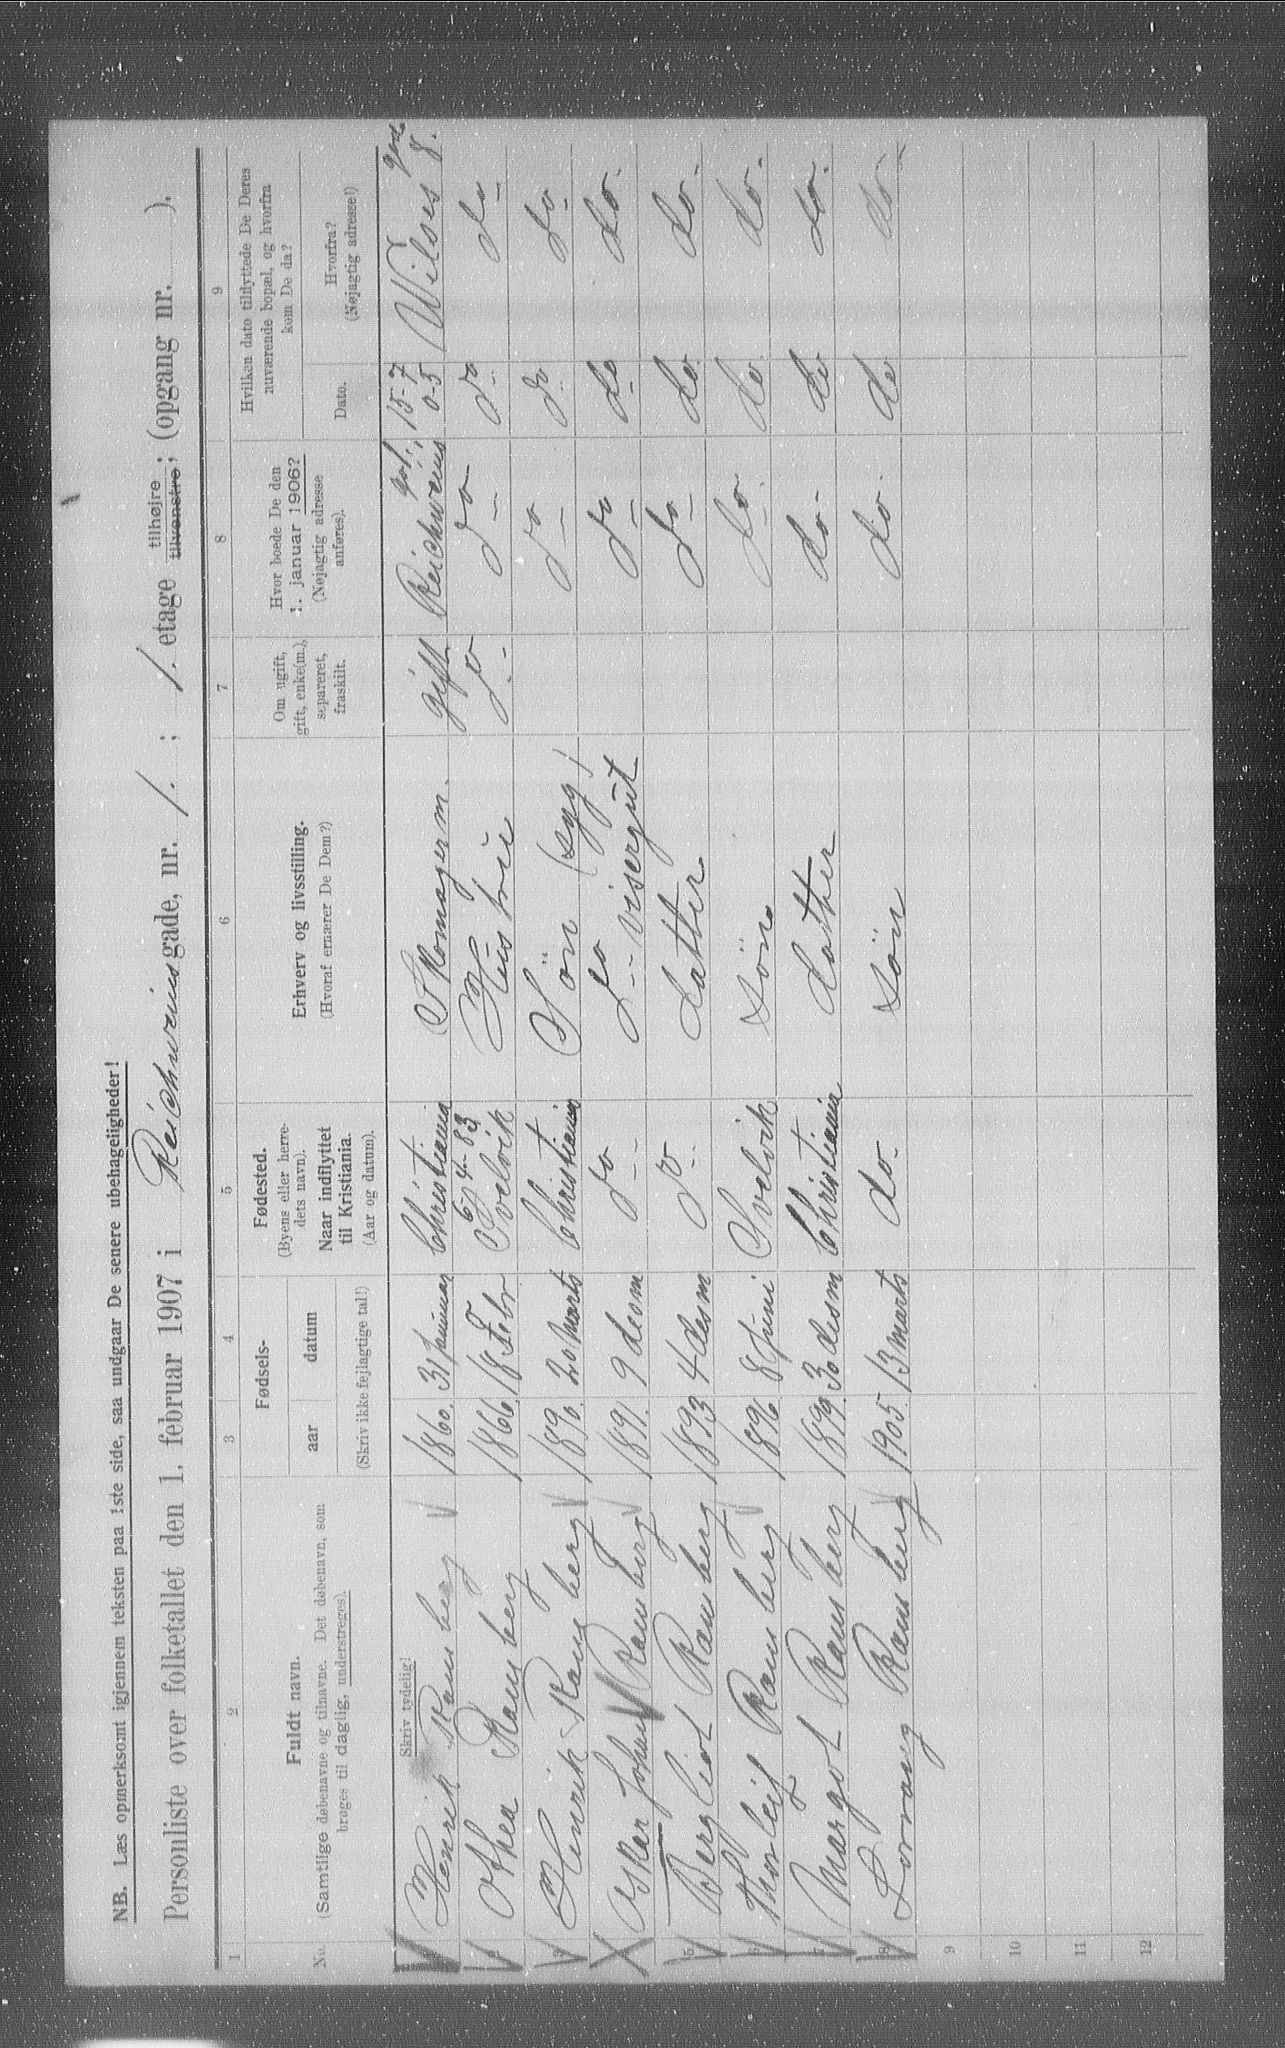 NB. Læs opmerksomt igjennem teksten paa 1ste side, saa undgaar De senere ubehageligheder!
Personliste over folketallet den 1. februar 1907 i Reichweinsgade, nr. 1. ; 1. etage tilhøjre tilvenstre; (opgang nr. ).
1 2 3 4 5 6 7 8 9
No.
Fuldt navn.
(Samtlige døbenavne og tilnavne. Det døbenavn, som
bruges til daglig, understreges).
Fødsels-
aar datum
(Skriv ikke fejlagtige tal!)
Fødested.
(Byens eller herre-
dets navn).
Naar indflyttet
til Kristiania.
(Aar og datum).
Erhverv og livsstilling.
(Hvoraf ernærer De Dem?)
Om ugift,
gift, enke(m.),
separeret,
fraskilt.
Hvor boede De den
1. januar 1906?
(Nøjagtig adresse
anføres).
Hvilken dato tilflyttede De Deres
nuværende bopæl, og hvorfra
kom De da?
Dato.
Hvorfra?
(Nøjagtig adresse!)
Skriv tydelig!
Henrik Ramberg 1860. 31 Januar Christiania Skomagerm. gift Reichweins 15-7 05 Wilses gade 8.
6/4-83
2 Othea Ramberg 1866 18 Febr Svelvik Hustrue do do do do
3 Henrik Ramberg 1890. 20 Marts Christiania Sön (syg) do do do
Oskar Johan Ramberg 1891. 9 decm do do visergut do do do.
5 Bergliot Ramberg 1893 4 desm do datter do do do.
6 Thorleif Ramberg 1896 8 Juni Svelvik sön do. do do.
7 Margot Ramberg 1899. 30 desm Christiania datter do do do.
8 Ramberg 1905. 13 marts do sön do. do do.
9
10
11
12